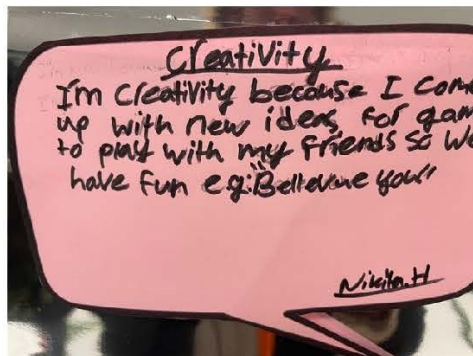 Creativity
I'm Creativity because I come
up with new ideas for gam
to play with my friends so we
have fun e.g:
Nikita.H